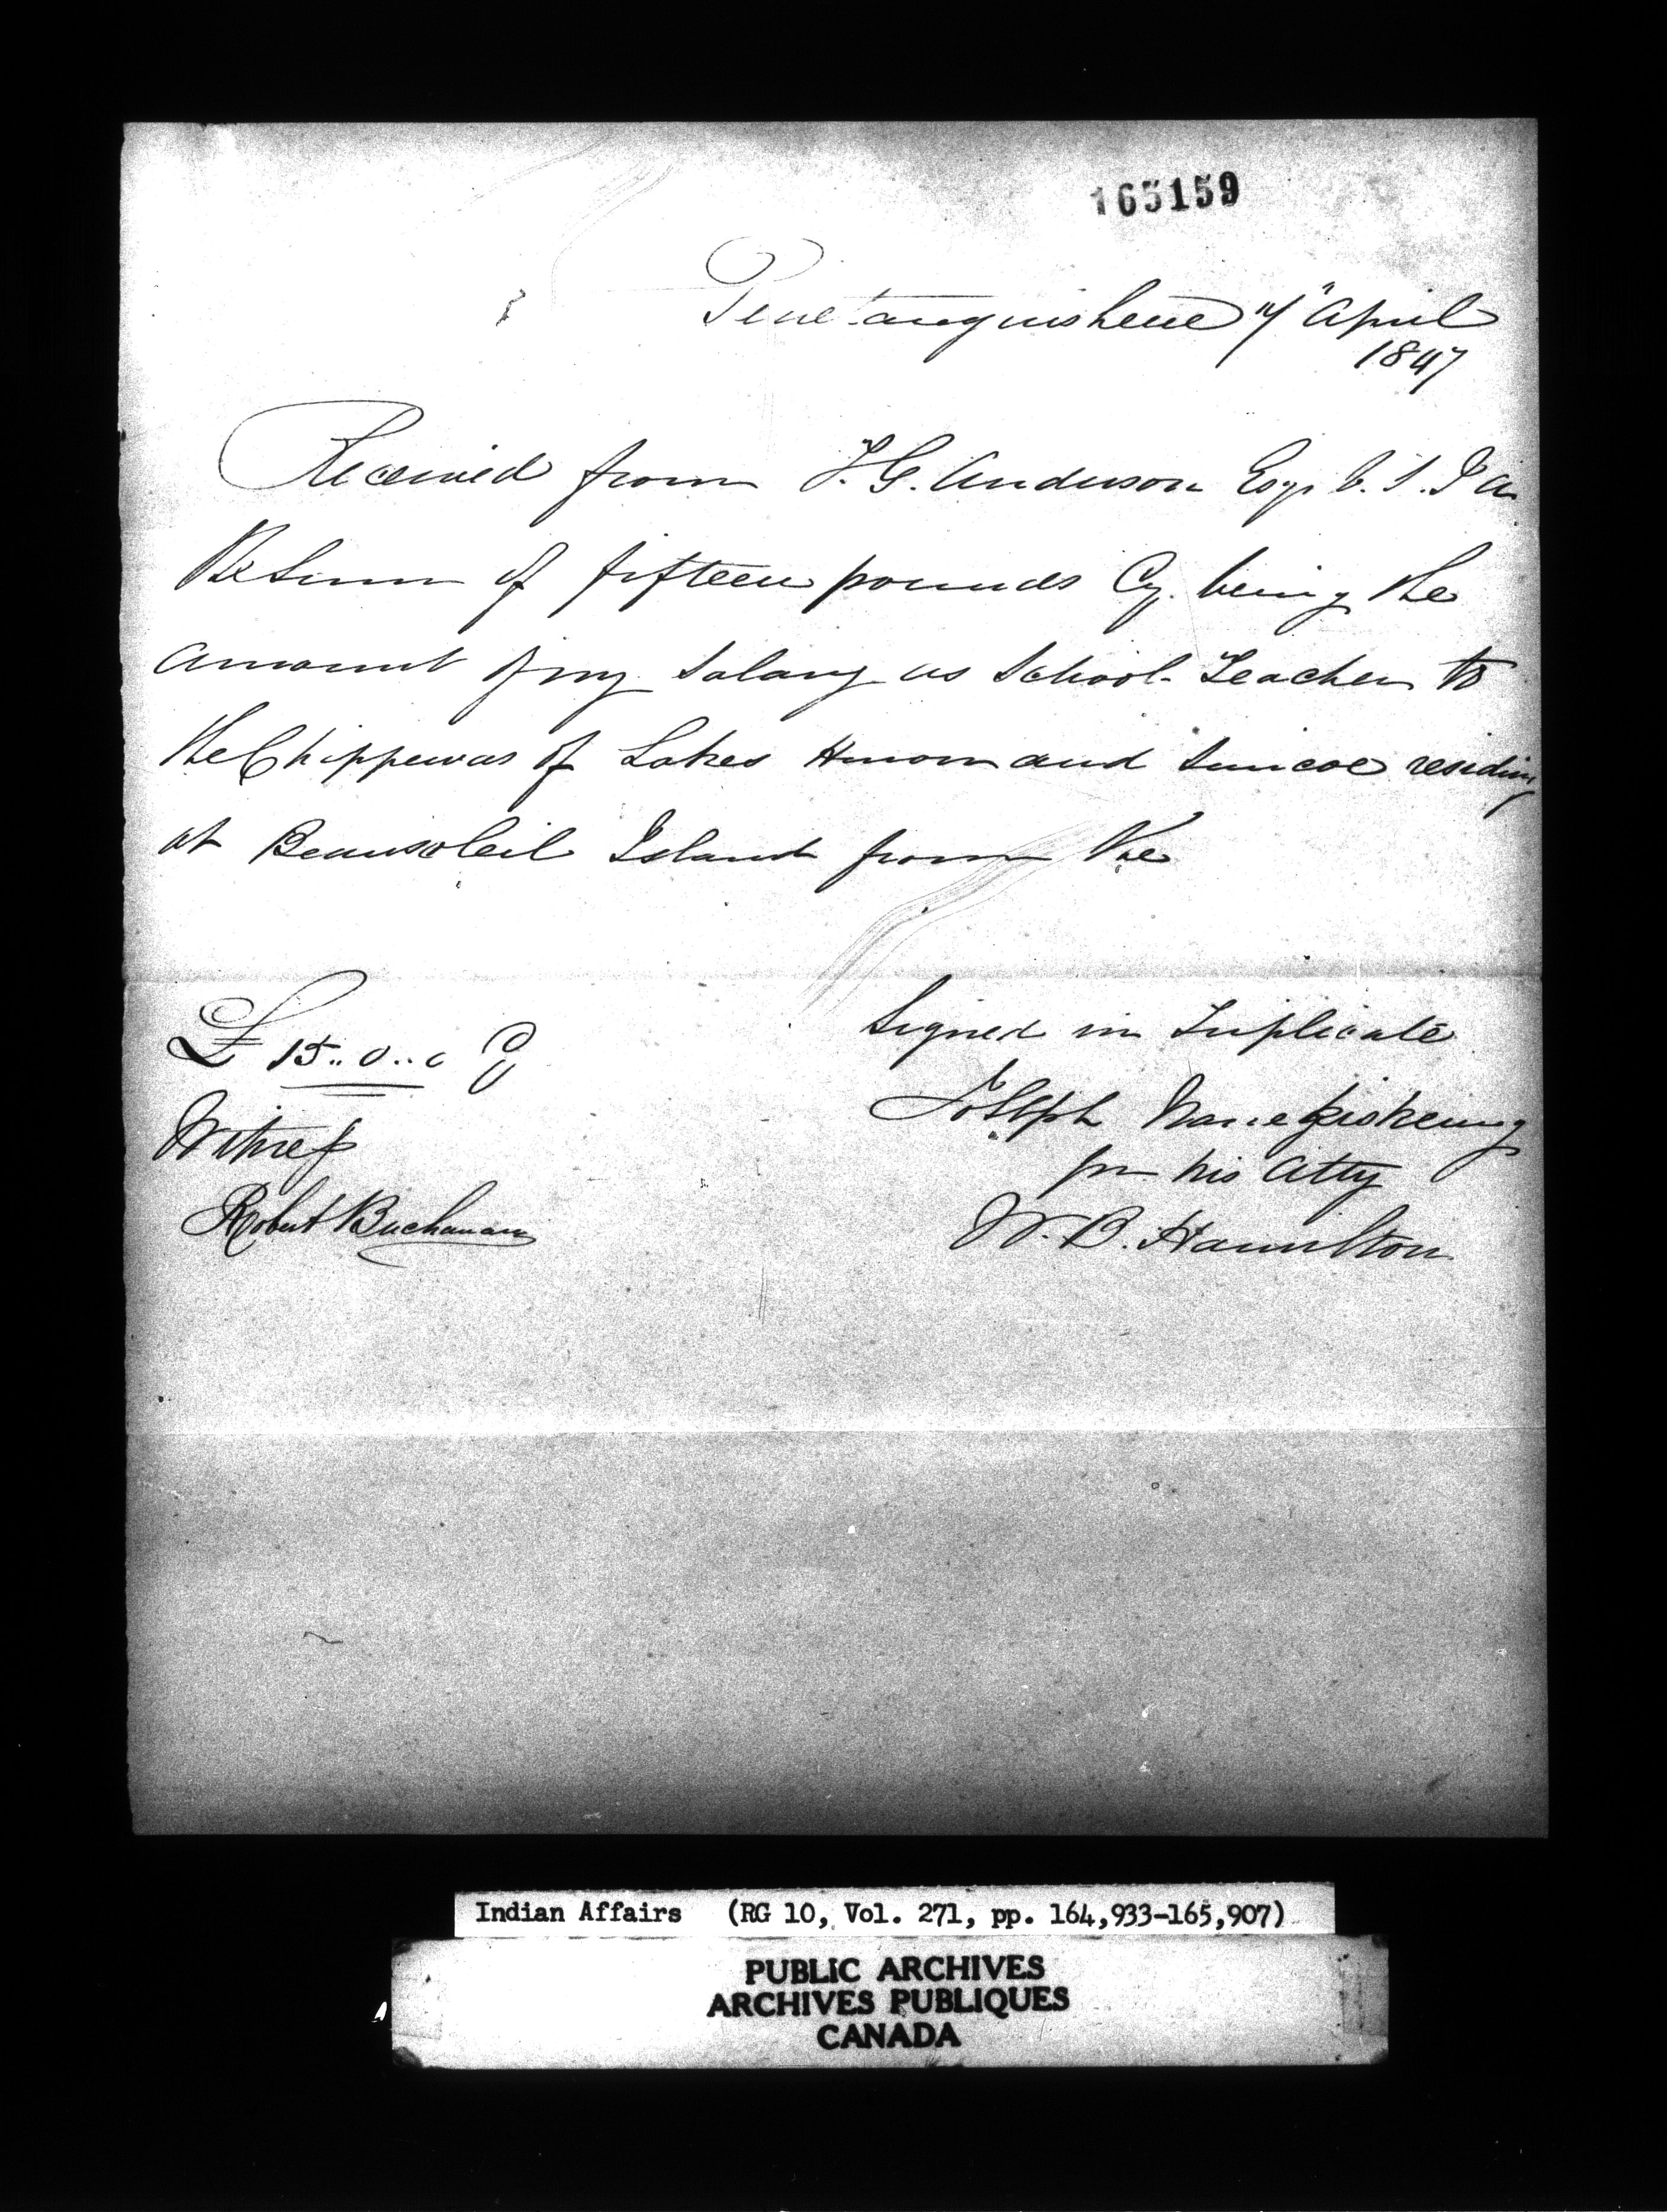 165159
Penetanguishene 7" April
1847
Received from T. G. Anderson Esqr V. S. I a
the Sum of fifteen pounds Cy. being the
amount of my Salary as School Teacher to
the Chippewas of Lakes Huron and Simcoe residing
at Beausoleil Island from the
£ 15.. 0.. 0 Cy
Signed in Triplicate
Witness
Joseph
Robert Buchanan
for his Atty
W. B. Hamilton
Indian Affairs (RG 10, Vol. 271, pp. 164,933-165,907)
PUBLIC ARCHIVES
ARCHIVES PUBLIQUES
CANADA